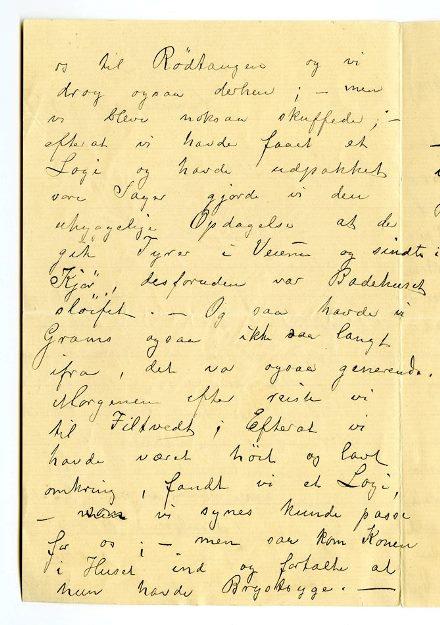 os til Rödtangen og vi
drog ogsaa derhen; – men
vi bleve noksaa skuffede; –
efterat vi havde faaet et
Logi og havde udpakket
vore Sager gjorde vi den
uhyggelige Opdagelse at de
gik Tyrer i Veiene og sindte
Kjör, desforuden var Badehuset
slöifet. – Og saa havde vi
Grams ogsaa ikke saa langt
ifra, det var ogsaa generende.
Morgenen efter reiste vi
til Filtvedt; Efterat vi
havde været höit og lavt
omkring, fandt vi et Logi,
– som vi synes kunde passe
for os; – men saa kom Konen
i Huset ind og fortalte at
hun havde Brystsyge. –